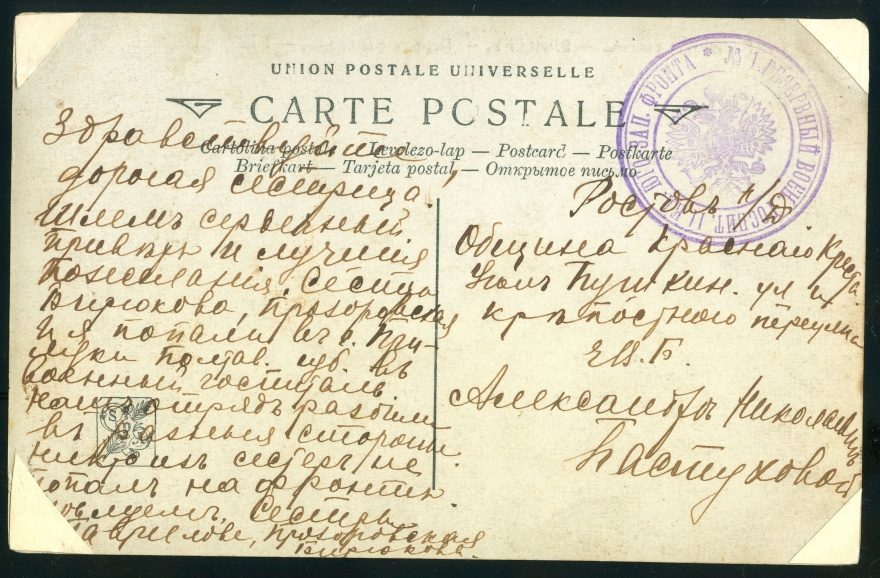 UNION POSTALE UNIVERSELLE
CARTE POSTALE
Cartolina postale — Levelezo-lap — Postcard — Postkarte
Briefkart — Tarjeta postal — Открытое письмо
№ 1. РЕЗЕРВНЫЙ ВОЕН. ГОСПИТ. ФРОНТА *
Здравствуйте
дорогая сестрица!
Шлемъ сердечный
приветъ и лучшия
пожелания. Сестра
Бирюкова, Прозоровская
и я попали въ г. При-
луки полтав. губ. въ
военный госпиталь
нашъ отрядъ разбили
въ разныя стороны
никто изъ сестеръ не
попалъ на фронтъ
целуемъ. Сестры
Гаврилова, Прозоровская
Бирюкова.
Ростовъ н/Д
Община Краснаго Креста.
Уголъ Пушкин. ул и
крепостного переулка
Е.В.Б.
Александръ Николаевнъ
Пастуховой